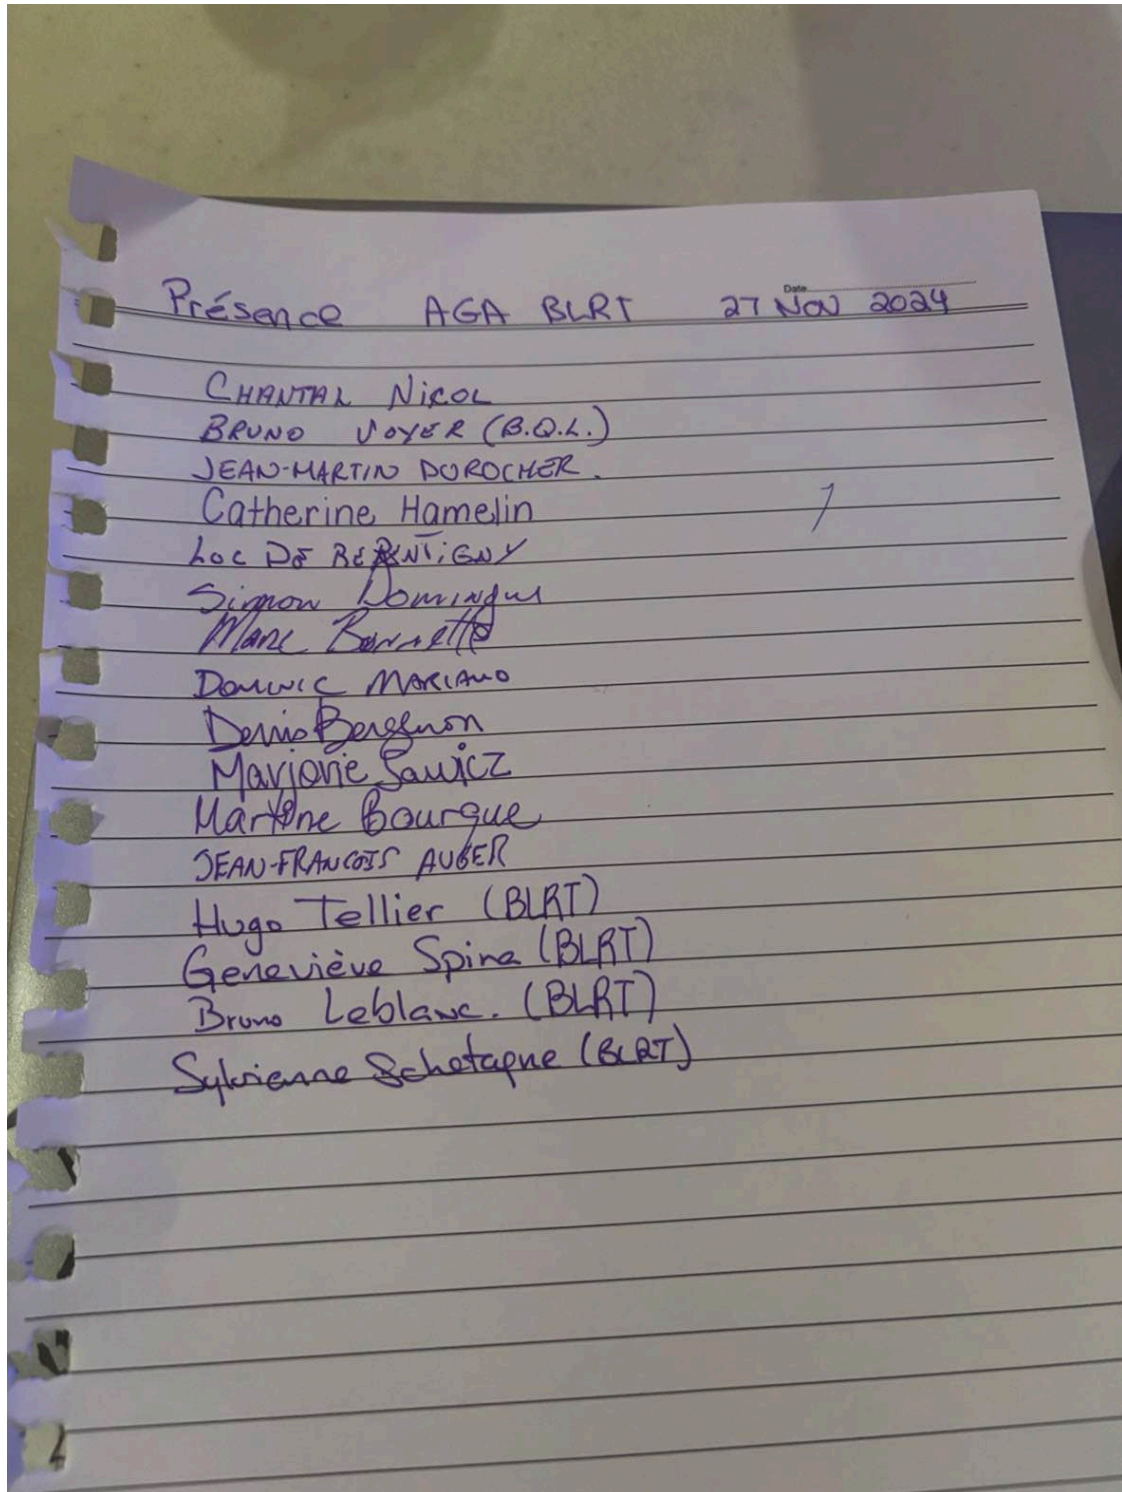 Présence AGA BLRT Date 27 Nov 2024
CHANTAL NICOL
BRUNO VOYER (B.Q.L.)
JEAN-MARTIN DUROCHER.
Catherine Hamelin
LOC DE REPENTIGNY
Simon Domingue
Marc
DOMINIC MARIANO
Denis Bergeron
Marjorie Sawicz
Martine Bourque
JEAN-FRANCOIS AUGER
Hugo Tellier (BLRT)
Geneviève Spina (BLRT)
Bruno Leblanc. (BLRT)
Sylvienne Schetagne (BLRT)